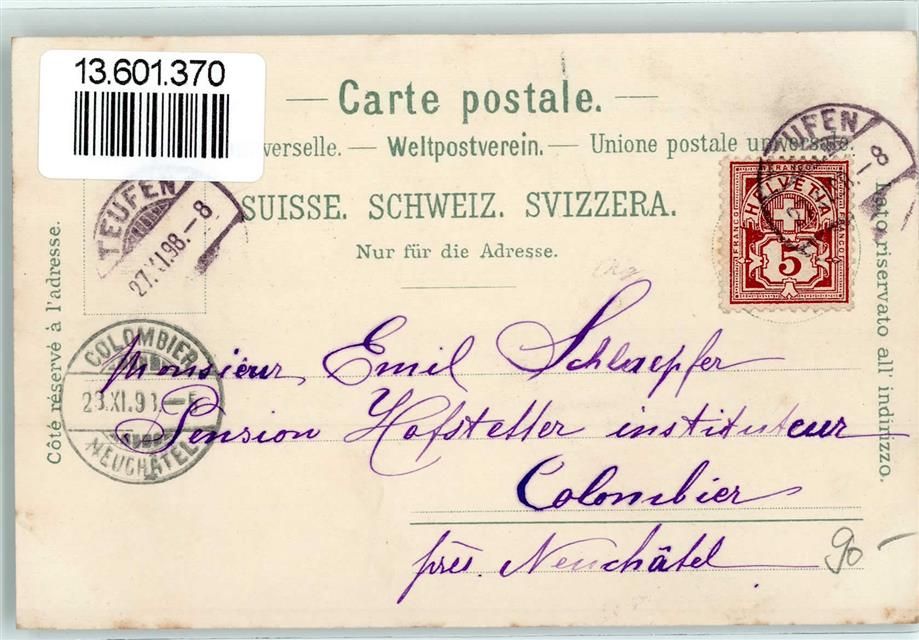 13.601.370
Carte postale.
verselle. — Weltpostverein. — Unione postale universale.
SUISSE. SCHWEIZ. SVIZZERA.
Nur für die Adresse.
Côté réservé à l'adresse.
Lato riservato all' indirizzo.
TEUFEN
27.XI.98.–8
TEUFEN
8
FRANCO
HELVETIA
FRANCO
FRANCO
5
COLOMBIER
28.XI.98.–5
NEUCHÂTEL
Monsieur Emil Schlaepfer
Pension Hofstetter instituteur
Colombier
près Neuchâtel
90 –